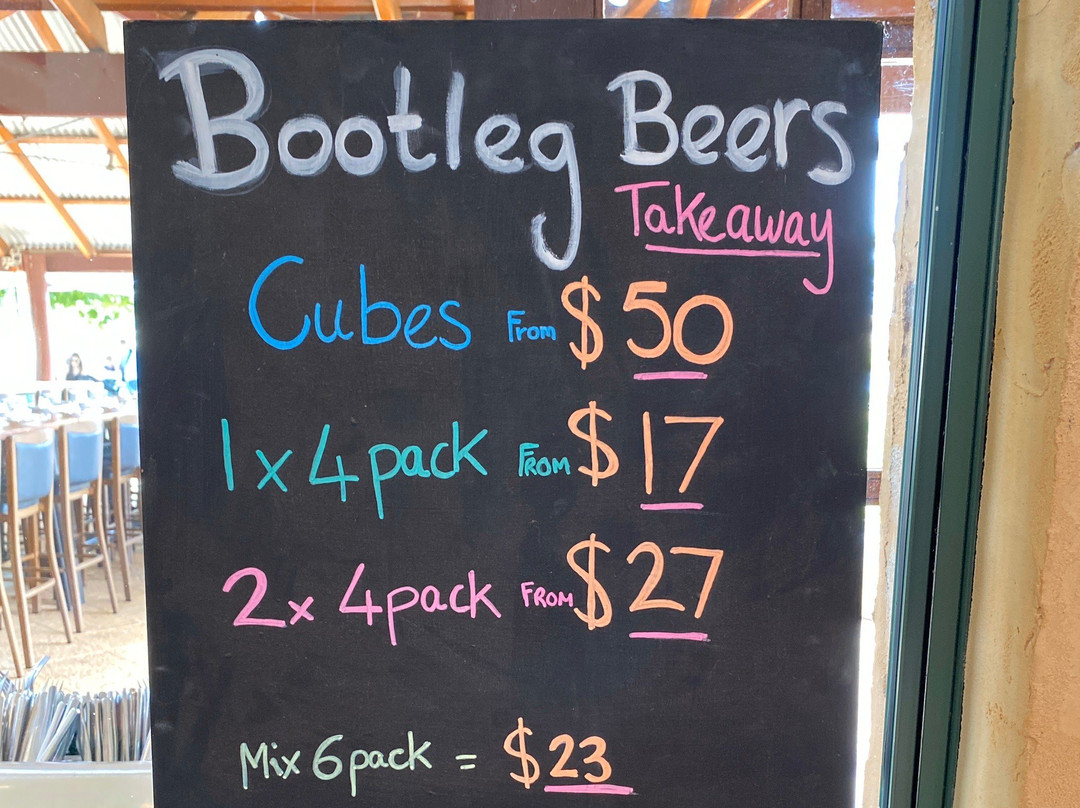 Bootleg Beers
Takeaway
Cubes From $50
1 x 4 pack FROM $17
2 x 4 pack FROM $27
Mix 6 pack = $23